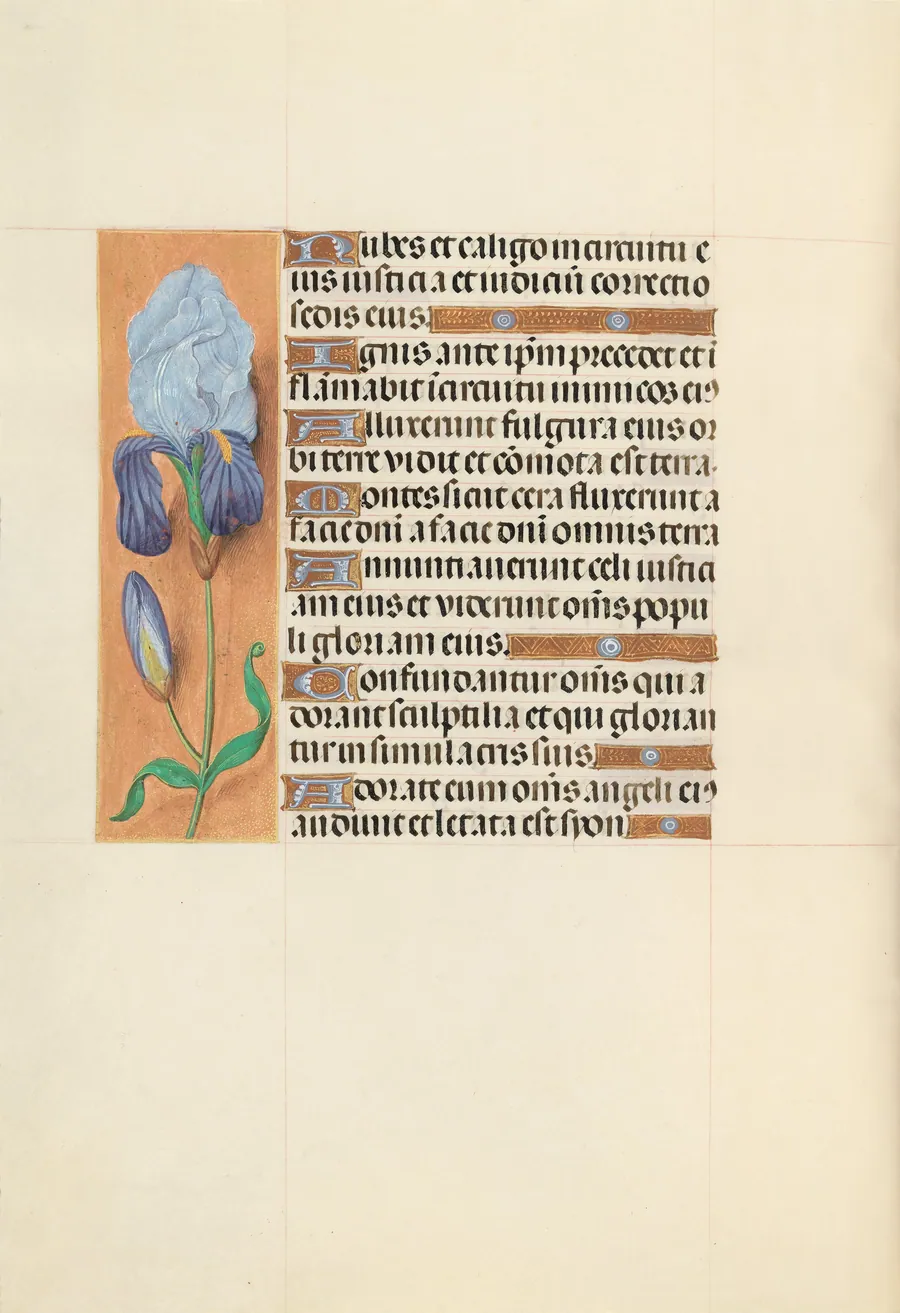 Nubes et caligo in circuitu e
ius iusticia et iudiciū correctio
sedis eius.
Ignis ante ip̄m precedet et ī
flāmabit īcircuitu inimicos eiꝰ
Alluxerunt fulgura eius or
bi terre vidit et cōmota est terra.
Montes sicut cera fluxerunt a
facie dn̄i a facie dn̄i omnis terra
Annuntiauerunt celi iustici
am eius et viderunt om̄s popu
li gloriam eius.
Confundantur om̄s qui a
dorant sculptilia et qui glorian
tur in simulacris suis.
Adorate eum om̄s angeli eiꝰ
audiuit et letata est syon